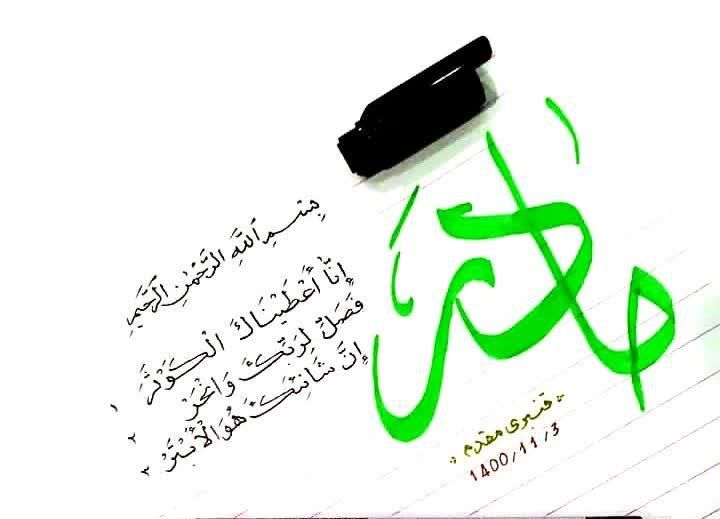 مادر
بِسْمِ ٱللَّهِ ٱلرَّحْمَٰنِ ٱلرَّحِيمِ
إِنَّا أَعْطَيْنَاكَ الْكَوْثَرَ ١
فَصَلِّ لِرَبِّكَ وَانْحَرْ ٢
إِنَّ شَانِئَكَ هُوَ الْأَبْتَرُ ٣
قنبری مقدم
1400/11/3